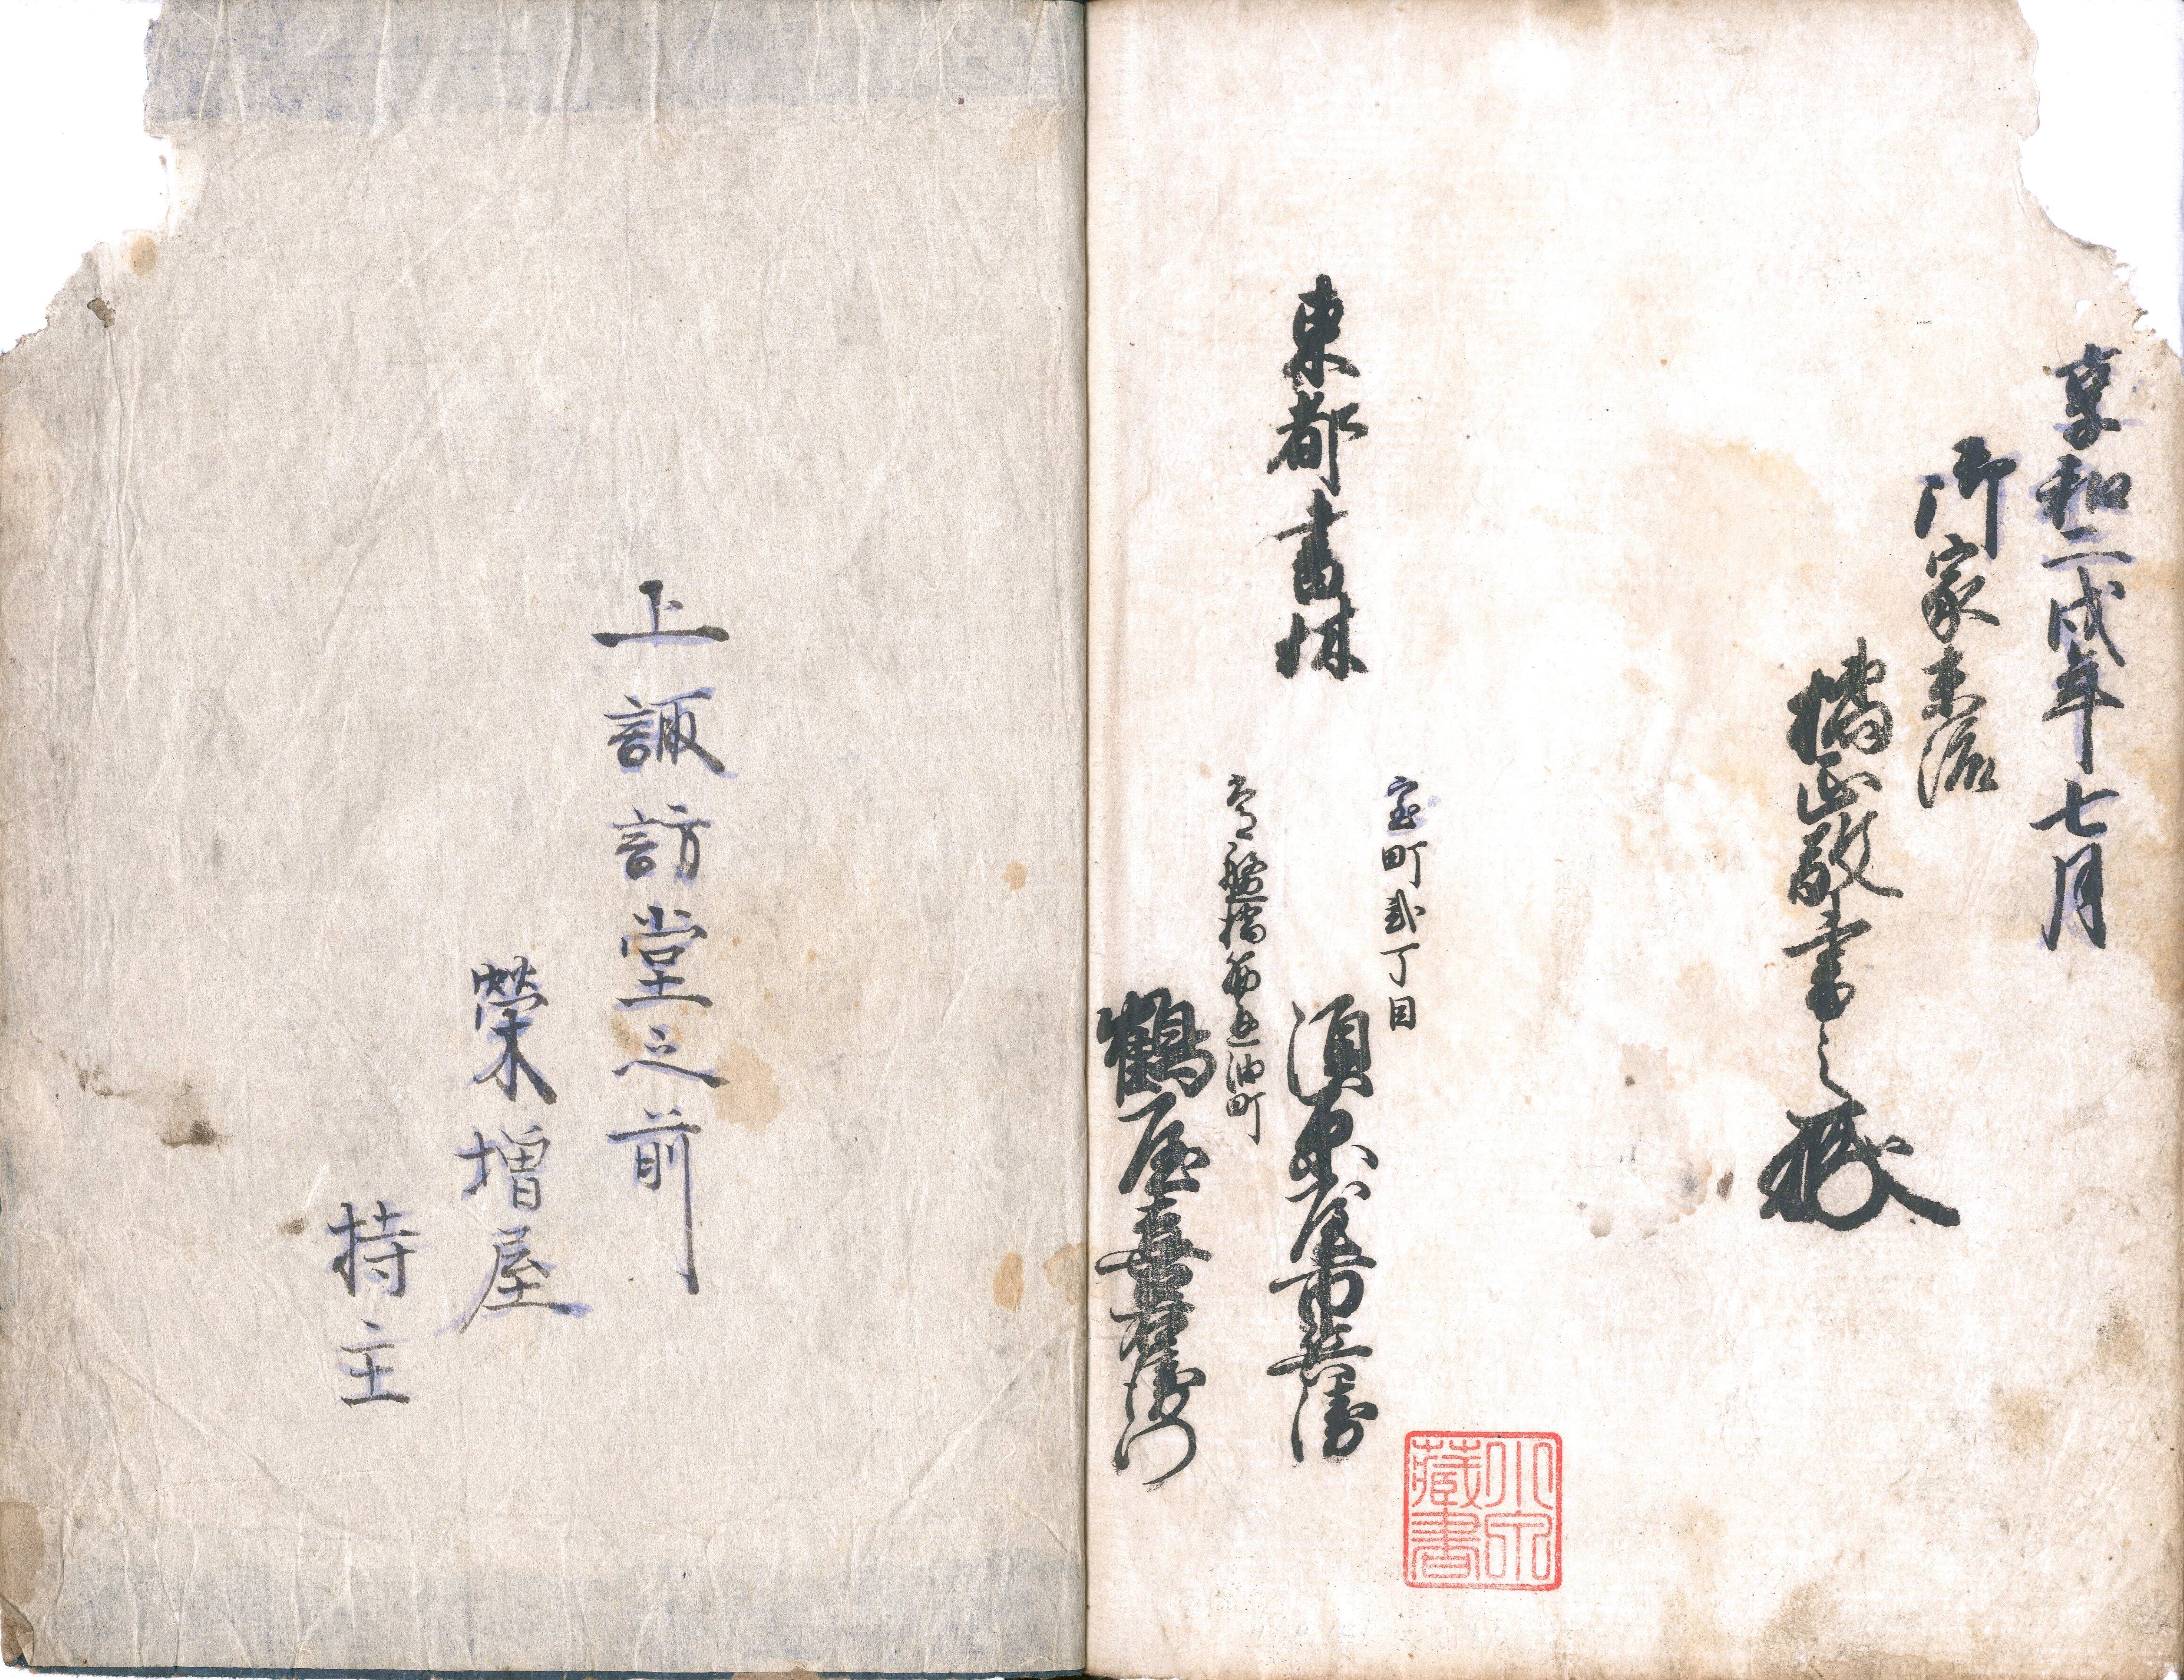 享和二戌年七月
御家末流
橘正敬書之
東都書林
室町貳丁目
須原屋市兵衛
常盤橋御門通油町
鶴屋喜右衛門
小泉
藏書
上諏訪堂之前
榮増屋
持主